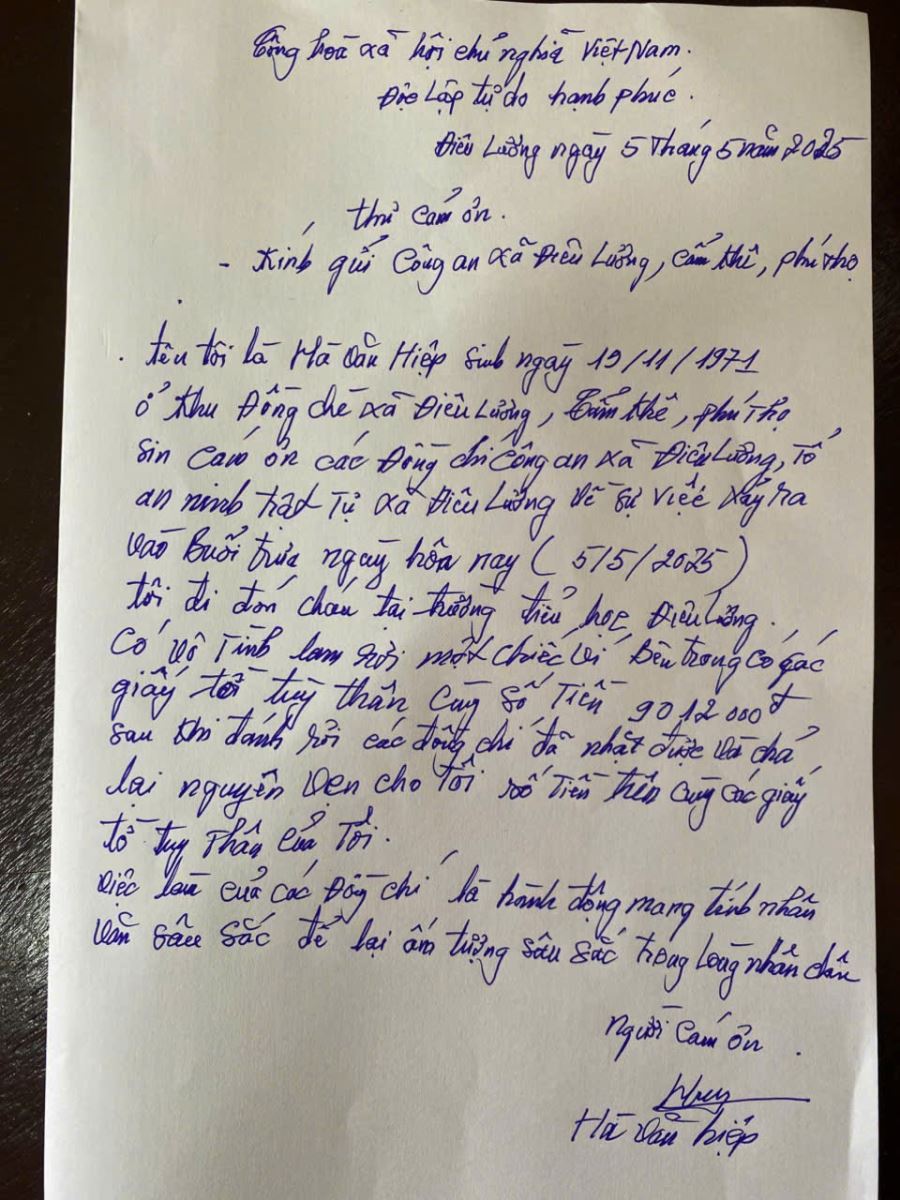 Cộng hoà xã hội chủ nghĩa Việt Nam.
Độc Lập tự do hạnh phúc.
Điêu Lương ngày 5 tháng 5 năm 2025
thư cảm ơn.
- Kính gửi Công an xã Điêu Lương, cẩm khê, phú thọ
. tên tôi là Hà Văn Hiệp sinh ngày 19/11/1971
ở khu Đồng chè xã Điêu Lương, Cẩm khê, phú thọ
sin cảm ơn các Đồng chí Công an xã Điêu Lương, Tổ
an ninh trật Tự xã Điêu Lương về sự việc xảy ra
vào Buổi trưa ngay hôm nay ( 5/5/2025 )
tôi đi đón cháu tại trường tiểu học Điêu Lương.
Có vô Tình lam rơi một chiếc ví Bên trong có các
giấy tờ tuỳ thân cùng số Tiền 9012000đ
sau khi đánh rơi các đồng chí đã nhặt được và chả
lại nguyên vẹn cho Tôi số Tiền trên cùng các giấy
tờ tuy thân của Tôi.
việc làm của các Đồng chí là hành động mang tính nhân
văn sâu sắc để lại ấm tượng sâu sắc trong lòng nhân dân
người cảm ơn.
Hà Văn hiệp